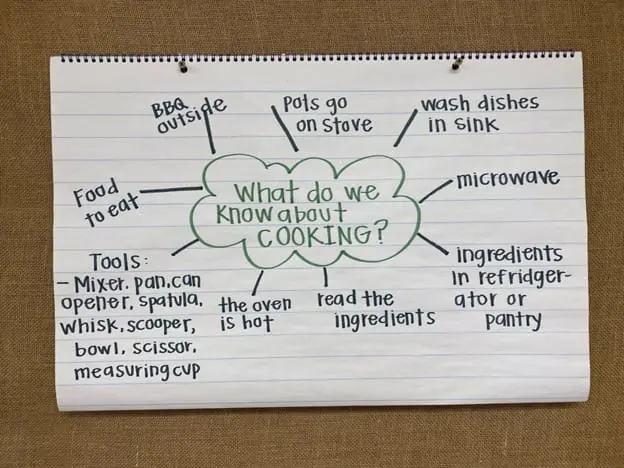 BBQ
outside
Pots go
on stove
wash dishes
in sink
microwave
ingredients
in refridger-
ator or
pantry
read the
ingredients
the oven
is hot
Tools:
- Mixer, pan, can
opener, spatula,
whisk, scooper,
bowl, scissor,
measuring cup
Food
to eat
What do we
Know about
COOKING?